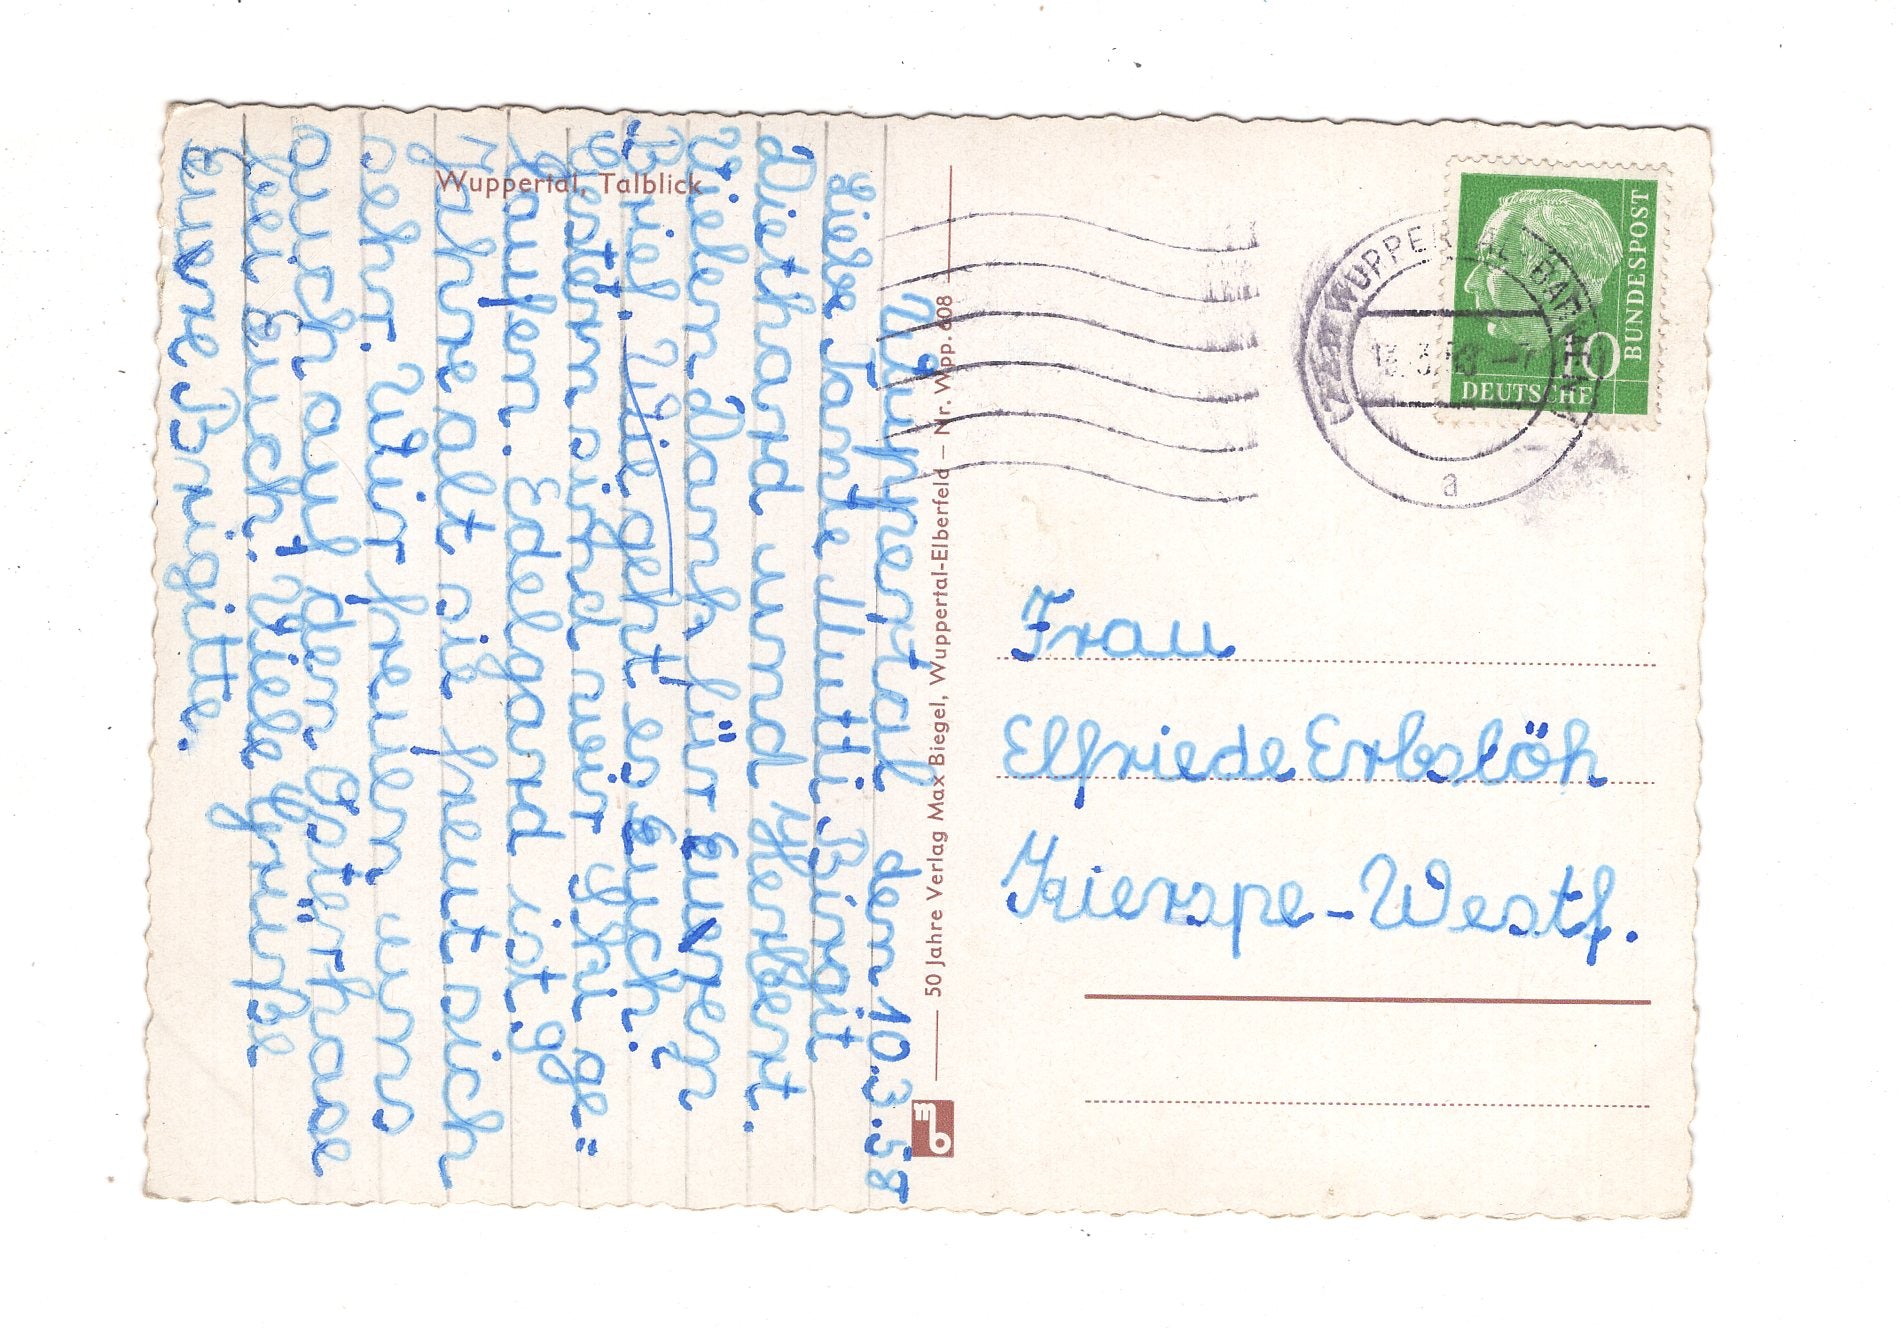 Wuppertal, Talblick
Wuppertal den 10.3.58
Liebe Tante Mutti Birgit
Diethard und Herbert.
Vielen Dank für euren
Brief. Wie geht es Euch.
Gestern sind wir Ski ge=
laufen. Edelgard ist 9
Jahre alt sie freut sich
sehr. Wir freuen uns
auch auf den Osterhase
bei Euch. Viele Grüße
Eure Brigitte.
50 Jahre Verlag Max Biegel, Wuppertal-Elberfeld – Nr. Wpp. 608
mb
WUPPERTAL-BARMEN
13.3.58 –7
a
10
DEUTSCHE
BUNDESPOST
Frau
Elfriede Erbslöh
Kierspe-Westf.